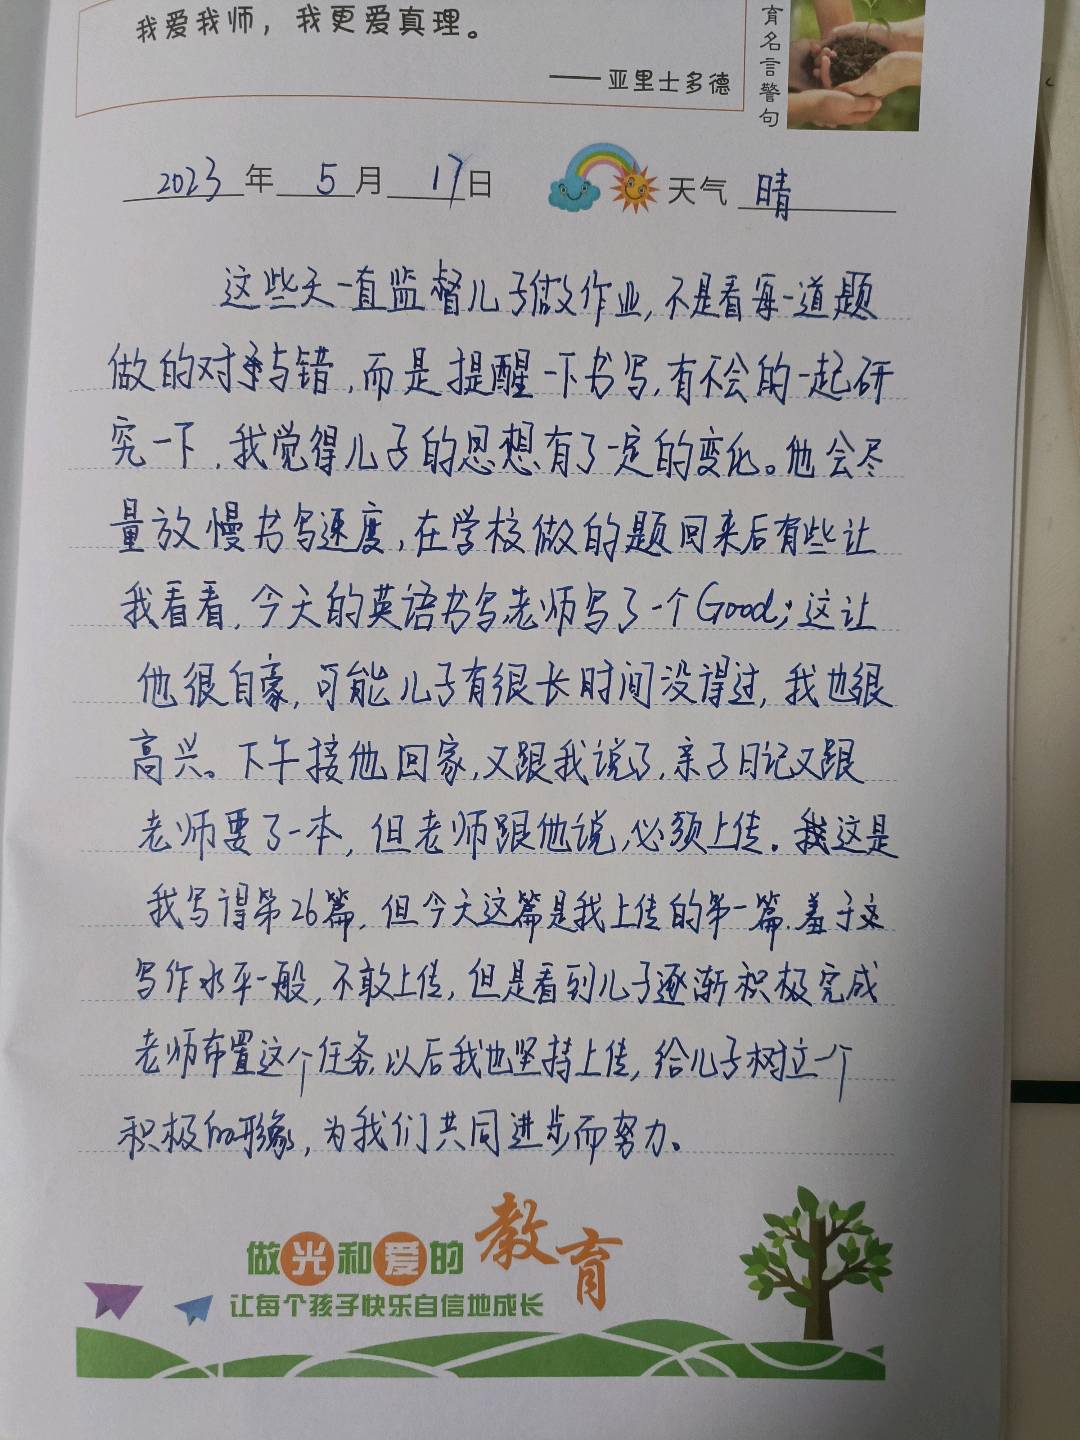 我爱我师，我更爱真理。
——亚里士多德
育名言警句
2023年5月17日 天气 晴
这些天一直监督儿子做作业，不是看每一道题
做的对与错，而是提醒一下书写，有不会的一起研
究一下，我觉得儿子的思想有了一定的变化。他会尽
量放慢书写速度，在学校做的题回来后有些让
我看看，今天的英语书写老师写了一个Good；这让
他很自豪，可能儿子有很长时间没得过，我也很
高兴。下午接他回家，又跟我说了，亲子日记又跟
老师要了一本，但老师跟他说，必须上传。这是
我写得第26篇，但今天这篇是我上传的第一篇.羞于这
写作水平一般，不敢上传，但是看到儿子逐渐积极完成
老师布置这个任务，以后我也坚持上传，给儿子树立一个
积极的形象，为我们共同进步而努力。
做光和爱的教育
让每个孩子快乐自信地成长